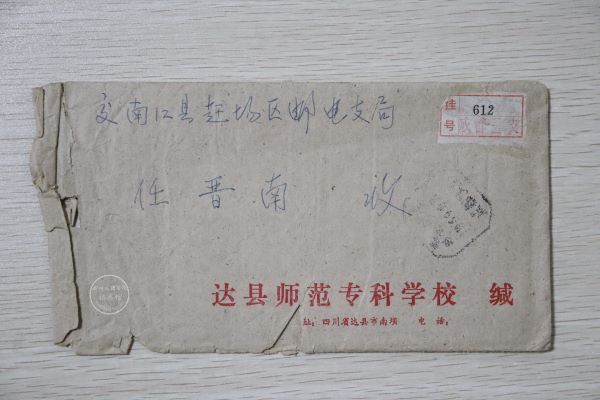 交南江县赶场区邮电支局
挂号
612
任晋南 收
达县师范专科学校 缄
址：四川省达县市南坝 电话：